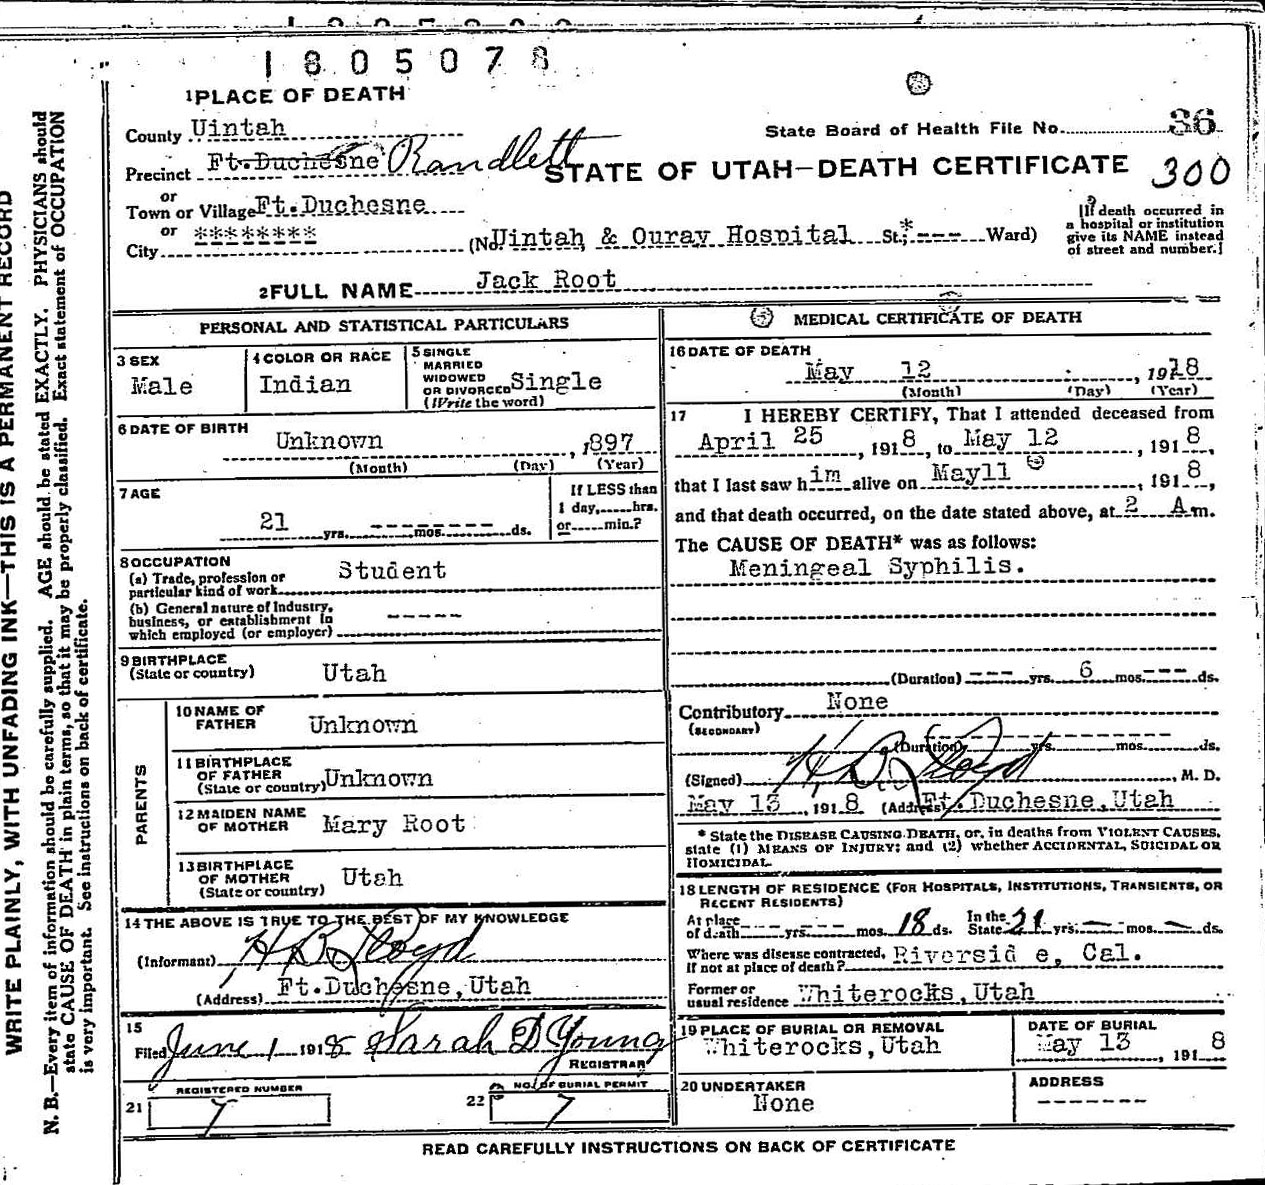 1805078
1 PLACE OF DEATH
County Uintah
State Board of Health File No. 36
Precinct Ft. Duchesne Randlett
STATE OF UTAH—DEATH CERTIFICATE 300
or
Town or Village Ft. Duchesne
or ********
City
(No. Uintah & Ouray Hospital St.; *--- Ward)
[If death occurred in
a hospital or institution
give its NAME instead
of street and number.]
2 FULL NAME Jack Root
PERSONAL AND STATISTICAL PARTICULARS
3 SEX
Male
4 COLOR OR RACE
Indian
5 SINGLE
MARRIED
WIDOWED
OR DIVORCED Single
(Write the word)
6 DATE OF BIRTH
Unknown , 1897
(Month) (Day) (Year)
7 AGE
21 yrs. mos. ds.
If LESS than
1 day, hrs.
or min.?
8 OCCUPATION
(a) Trade, profession or
particular kind of work Student
(b) General nature of Industry,
business, or establishment in
which employed (or employer) -----
9 BIRTHPLACE
(State or country) Utah
PARENTS
10 NAME OF
FATHER Unknown
11 BIRTHPLACE
OF FATHER
(State or country) Unknown
12 MAIDEN NAME
OF MOTHER Mary Root
13 BIRTHPLACE
OF MOTHER
(State or country) Utah
14 THE ABOVE IS TRUE TO THE BEST OF MY KNOWLEDGE
(Informant) H B Lloyd
(Address) Ft. Duchesne, Utah
15
Filed June 1 1918 Sarah D Young
REGISTRAR
REGISTERED NUMBER
21 7
NO. OF BURIAL PERMIT
22 7
MEDICAL CERTIFICATE OF DEATH
16 DATE OF DEATH
May 12 , 1918
(Month) (Day) (Year)
17 I HEREBY CERTIFY, That I attended deceased from
April 25 , 1918, to May 12 , 1918,
that I last saw him alive on May 11 , 1918,
and that death occurred, on the date stated above, at 2 A m.
The CAUSE OF DEATH* was as follows:
Meningeal Syphilis.
(Duration) --- yrs. 6 mos. --- ds.
Contributory None
(SECONDARY)
(Duration) yrs. mos. ds.
(Signed) H B Lloyd , M. D.
May 13 , 1918 (Address) Ft. Duchesne, Utah
* State the DISEASE CAUSING DEATH, or, in deaths from VIOLENT CAUSES,
state (1) MEANS OF INJURY; and (2) whether ACCIDENTAL, SUICIDAL OR
HOMICIDAL.
18 LENGTH OF RESIDENCE (FOR HOSPITALS, INSTITUTIONS, TRANSIENTS, OR
RECENT RESIDENTS)
At place
of death --- yrs. --- mos. 18 ds.
In the
State 21 yrs. mos. ds.
Where was disease contracted,
if not at place of death? Riversid e, Cal.
Former or
usual residence Whiterocks, Utah
19 PLACE OF BURIAL OR REMOVAL
Whiterocks, Utah
DATE OF BURIAL
May 13 , 1918
20 UNDERTAKER
None
ADDRESS
-------
READ CAREFULLY INSTRUCTIONS ON BACK OF CERTIFICATE
WRITE PLAINLY, WITH UNFADING INK—THIS IS A PERMANENT RECORD
N. B.—Every item of information should be carefully supplied. AGE should be stated EXACTLY. PHYSICIANS should
state CAUSE OF DEATH in plain terms, so that it may be properly classified. Exact statement of OCCUPATION
is very important. See instructions on back of certificate.